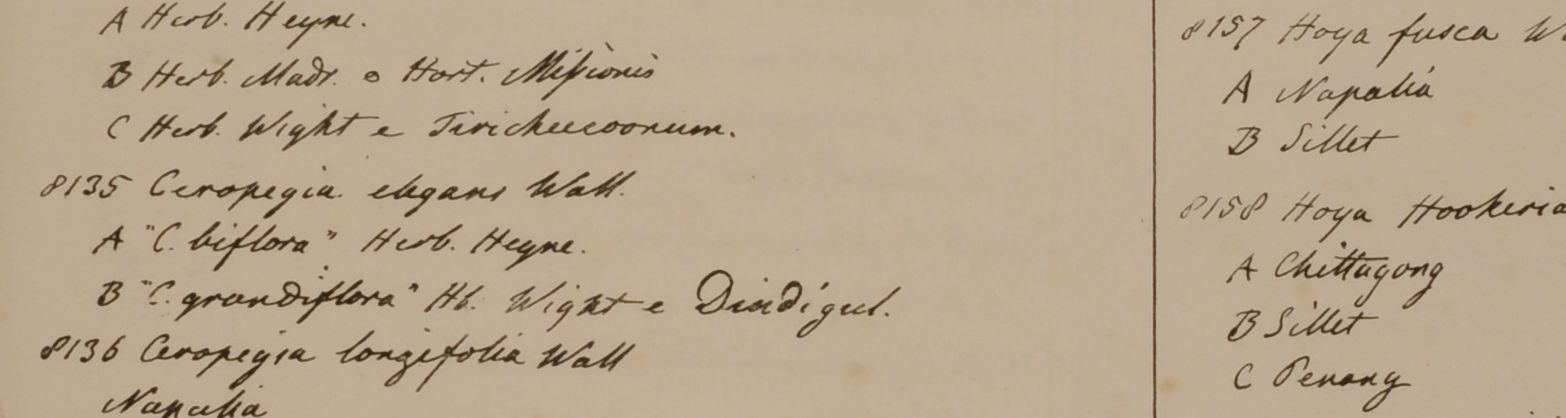 A Herb. Heyne.
B Herb. Madr. e Hort. Missionis
C Herb. Wight e
8135 Ceropegia elegans Wall.
A "C. biflora" Herb. Heyne.
B "C. grandiflora" Hb. Wight e Dindigul.
8136 Ceropegia longifolia Wall
Napalia
8157 Hoya fusca W
A Napalia
B Sillet
8158 Hoya Hookeria
A Chittagong
B Sillet
C Penang